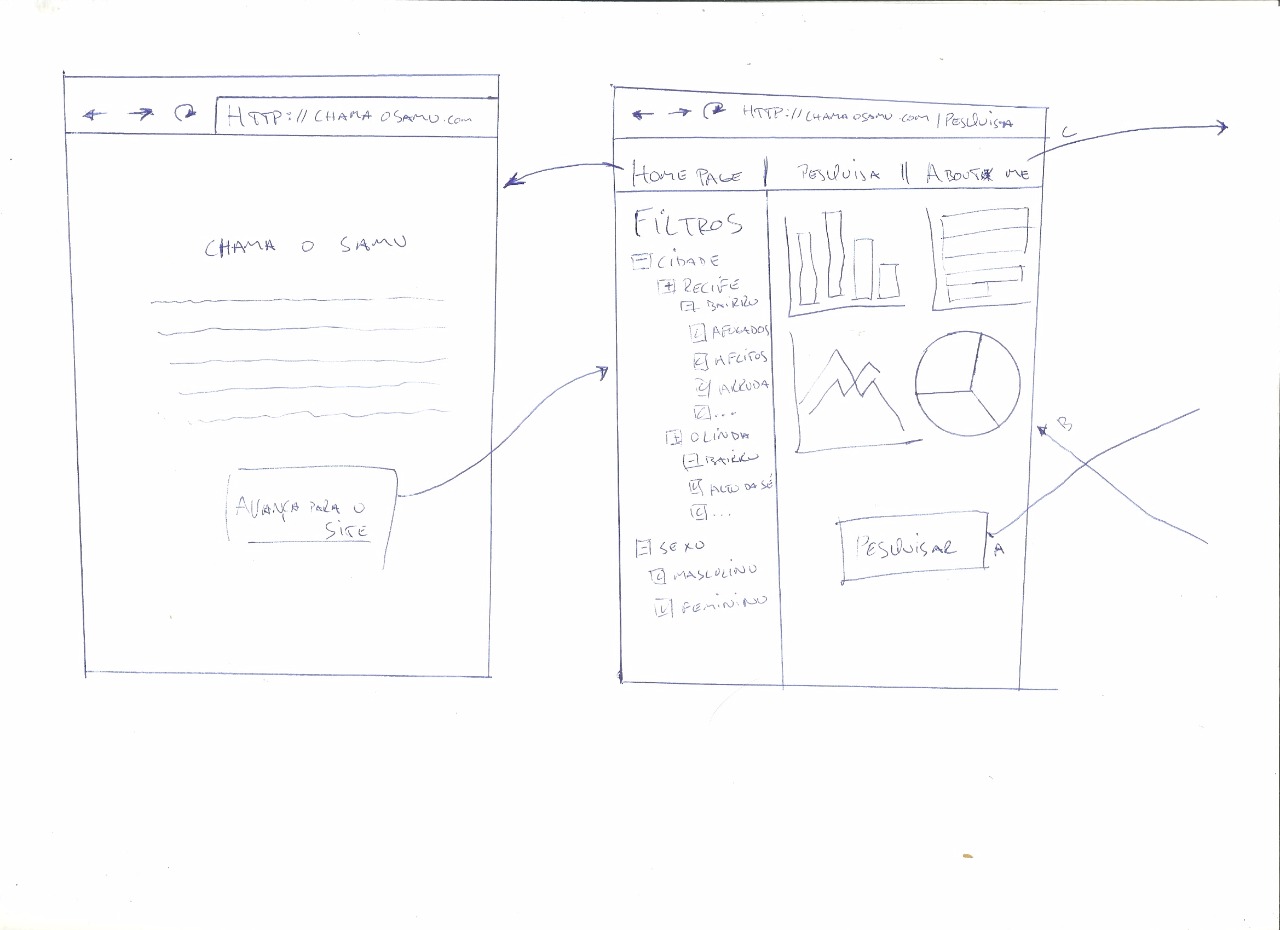 HTTP://CHAMAOSAMU.com
CHAMA O SAMU
AVANÇA PARA O
SITE
HTTP://CHAMAOSAMU.com/PESQUISA
HOME PAGE | PESQUISA || ABOUT ME
C
FILTROS
CIDADE
RECIFE
BAIRRO
AFOGADOS
AFLITOS
ARRUDA
...
OLINDA
BAIRRO
ALTO DA SÉ
...
SEXO
MASCULINO
FEMININO
B
PESQUISAR
A